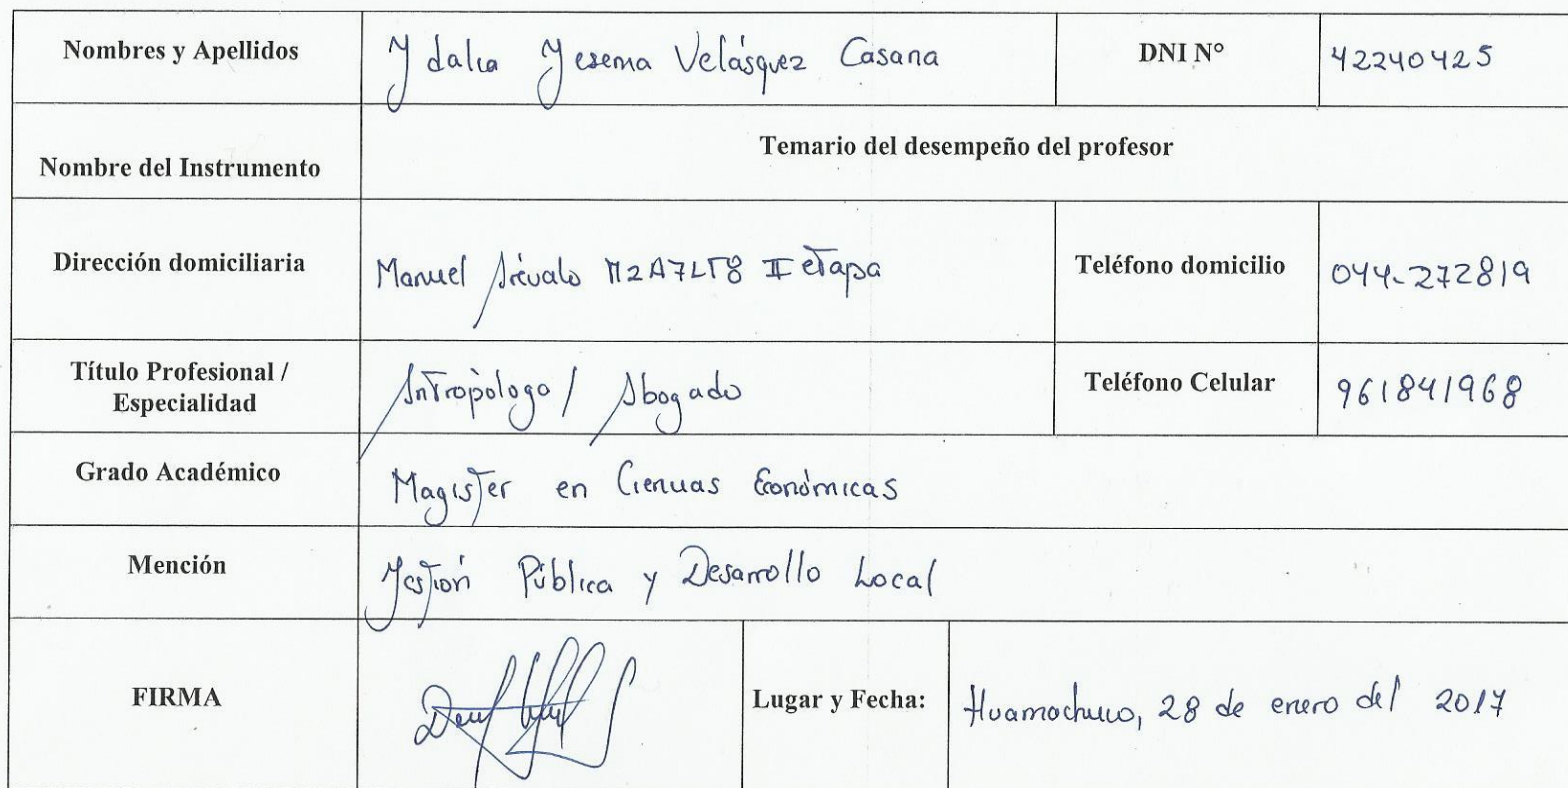 Nombres y Apellidos
Ydalia Yesenia Velásquez Casana
DNI N°
42240425
Nombre del Instrumento
Temario del desempeño del profesor
Dirección domiciliaria
Manuel Arévalo MzA7LT8 II etapa
Teléfono domicilio
044-272819
Título Profesional /
Especialidad
Antropòlogo / Abogado
Teléfono Celular
961841968
Grado Académico
Magister en Ciencias Económicas
Mención
Gestión Pública y Desarrollo Local
FIRMA
Lugar y Fecha:
Huamachuco, 28 de enero del 2017